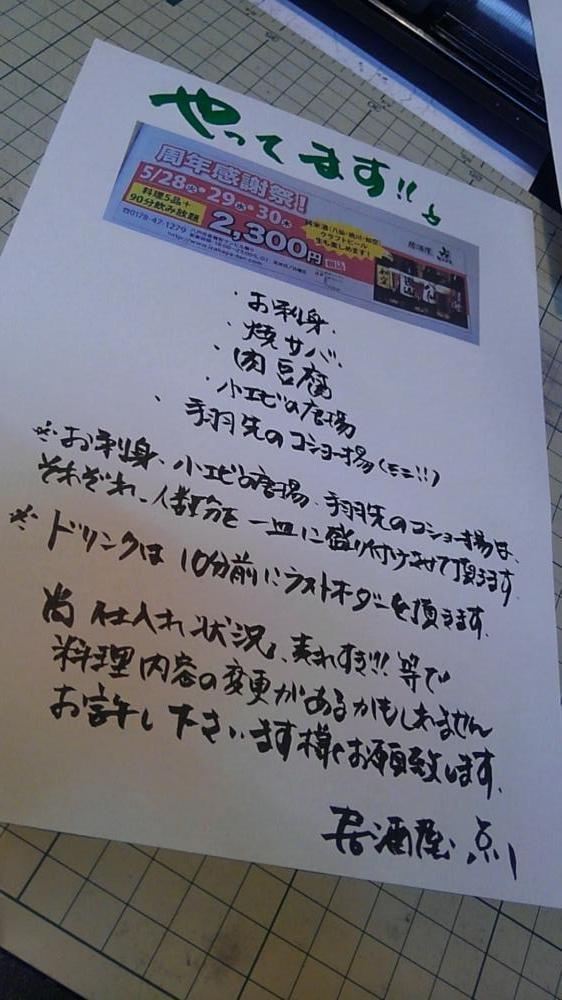 やってます!!
周年感謝祭!
5/28㊋・29㊌・30㊍
料理5品+
90分飲み放題
2,300円 税込
純米酒(八仙・桃川・如空)
クラフトビール
生も楽しめます!
居酒屋
☎0178-47-1279
・お刺身
・焼サバ
・肉豆腐
・小エビの唐揚
・手羽先のコショー揚(モニ!!)
※お刺身、小エビの唐揚、手羽先のコショー揚は、
それぞれ、人数分を一皿に盛り付けさせて頂きます
※ドリンクは10分前にラストオーダーを頂きます。
尚 仕入れ状況、売れすぎ!!等で
料理内容の変更があるかもしれません
お許し下さいます様お願致します。
居酒屋 点